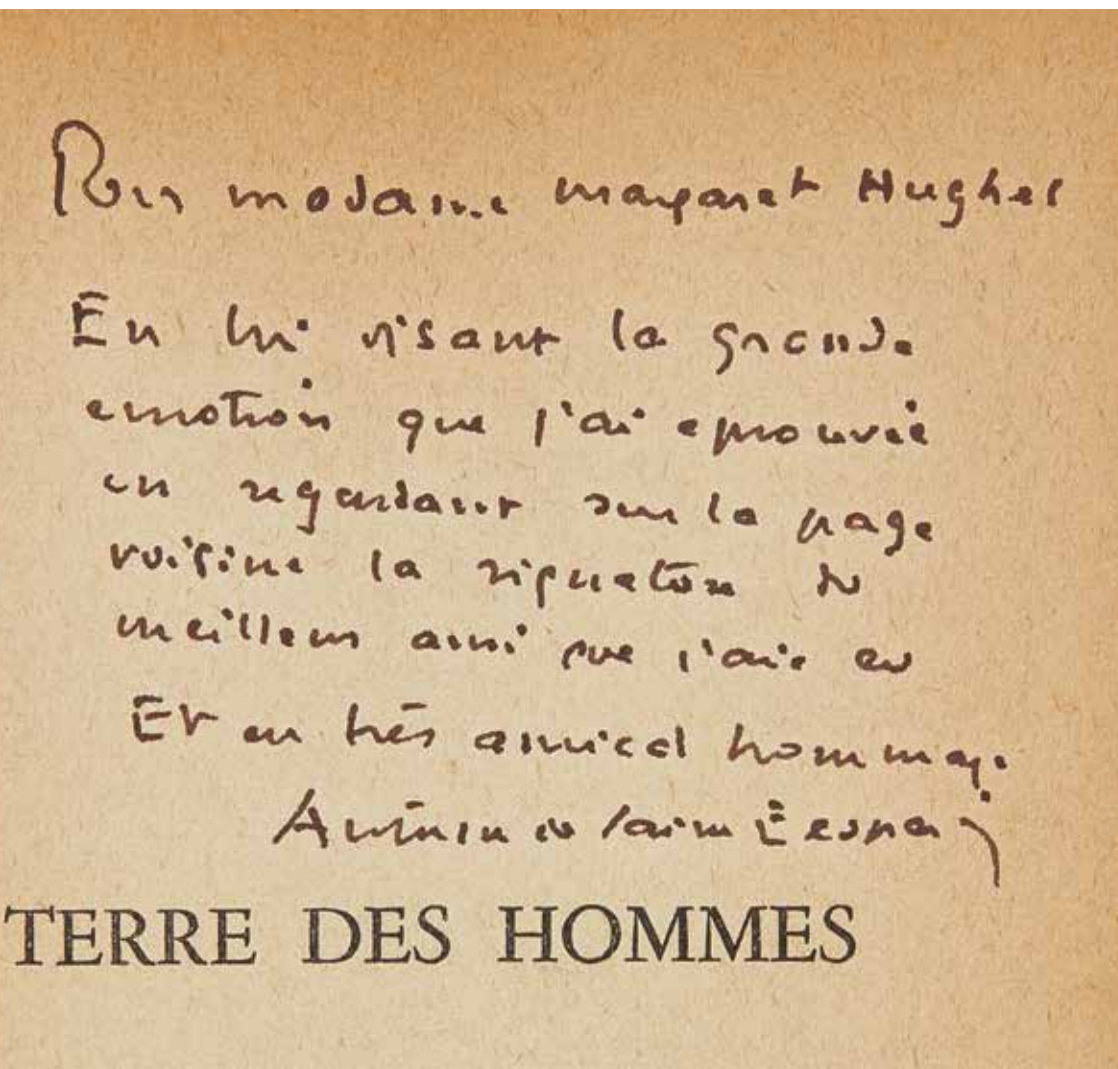 Pour madame Margaret Hughes
En lui disant la grande
emotion que j'ai eprouvée
en regardant sur la page
voisine la signature du
meilleur ami que j'aie eu
Et en très amical hommage
Antoine de Saint Exupery
TERRE DES HOMMES